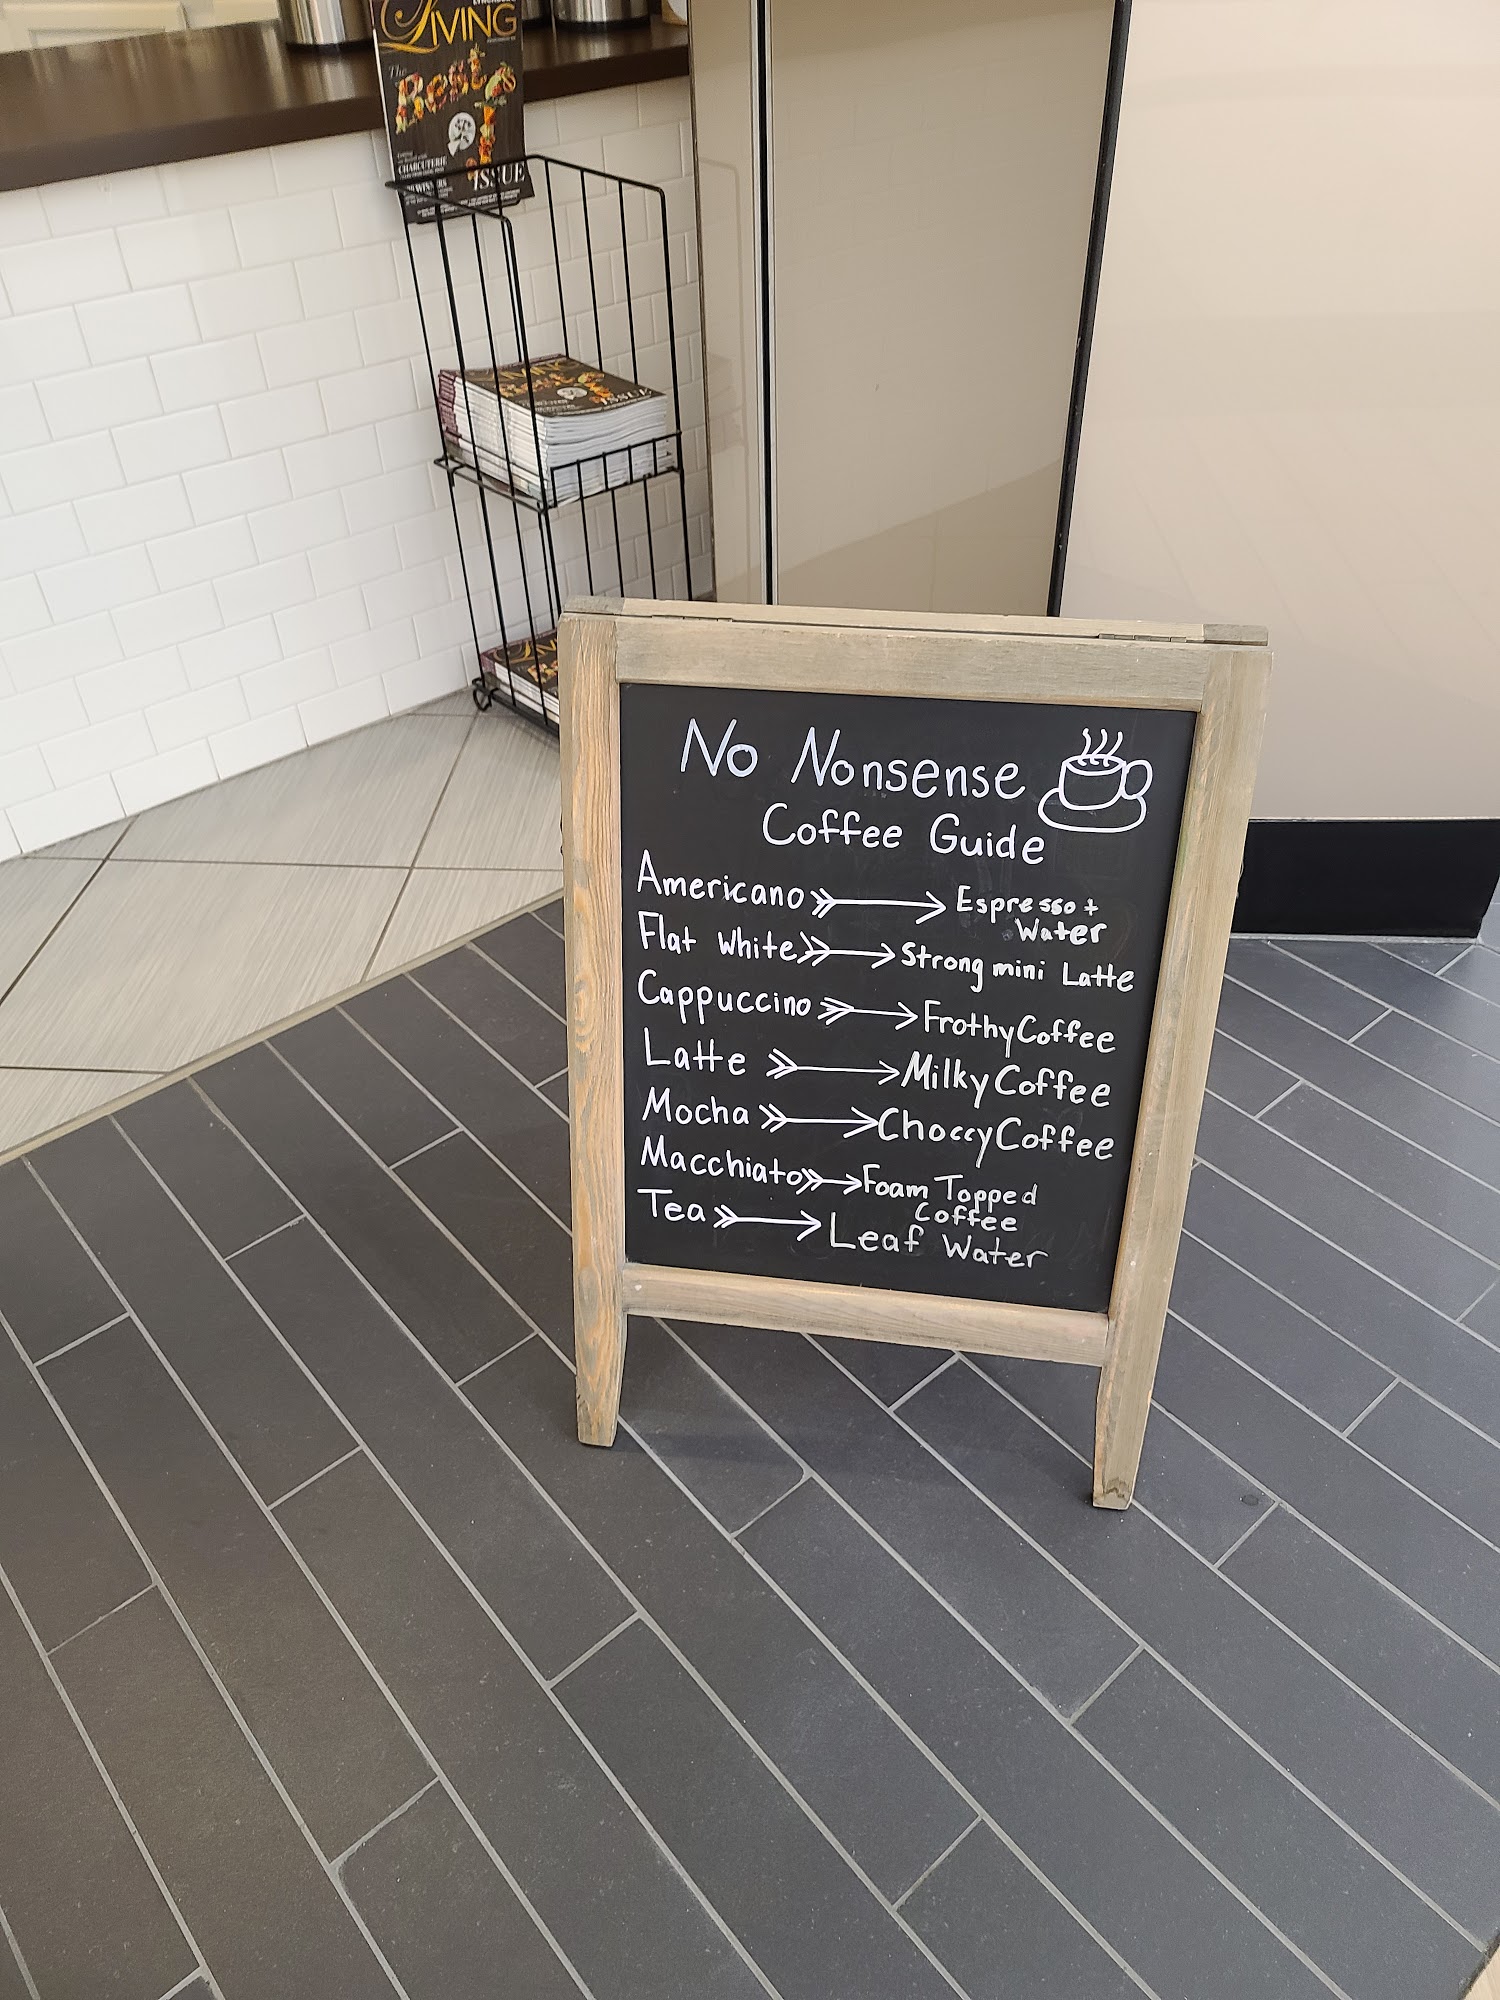 LIVING
The
Best
of
CHARCUTERIE
WINNERS
ISSUE
LIVING
ISSUE
No Nonsense
Coffee Guide
Americano Espresso +
Water
Flat white Strong mini Latte
Cappuccino Frothy Coffee
Latte Milky Coffee
Mocha Choccy Coffee
Macchiato Foam Topped
Coffee
Tea Leaf Water